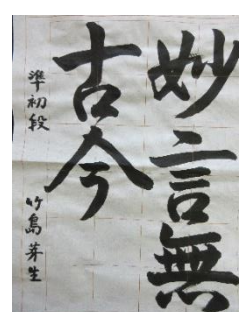 妙言無
古今
準初段 竹島芽生